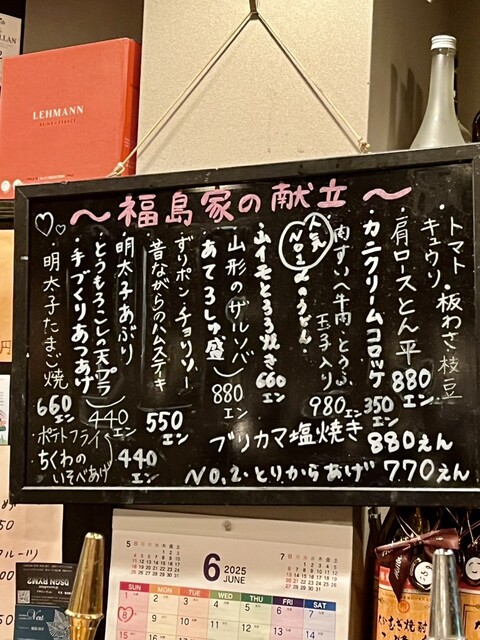 LEHMANN
～福島家の献立～
トマト
キュウリ
・板わさ・枝豆
・肩ロースとん平
880エン
・カニクリームコロッケ
350エン
肉すいへ牛肉・とうふ、
玉子入り
980エン
人気
No.1
のうどん
・山イモとろろ焼き
660エン
・山形のザルソバ
あてろしゅ盛
880エン
ずりポン・チョリソー
昔ながらのハムステーキ
550エン
明太子あぶり
とうもろこしの天プラ
・手づくりあつあげ
440エン
・明太子たまご焼
660エン
ブリカマ塩焼き 880えん
No.2・とりからあげ 770えん
ポテトフライ
ちくわの
いそべあげ
440エン
6 2025
JUNE
5
7
SUN MON TUE WED THU FRI SAT
1 2 3 4 5 6 7
8 9 10 11 12 13 14
DSGN RYM2